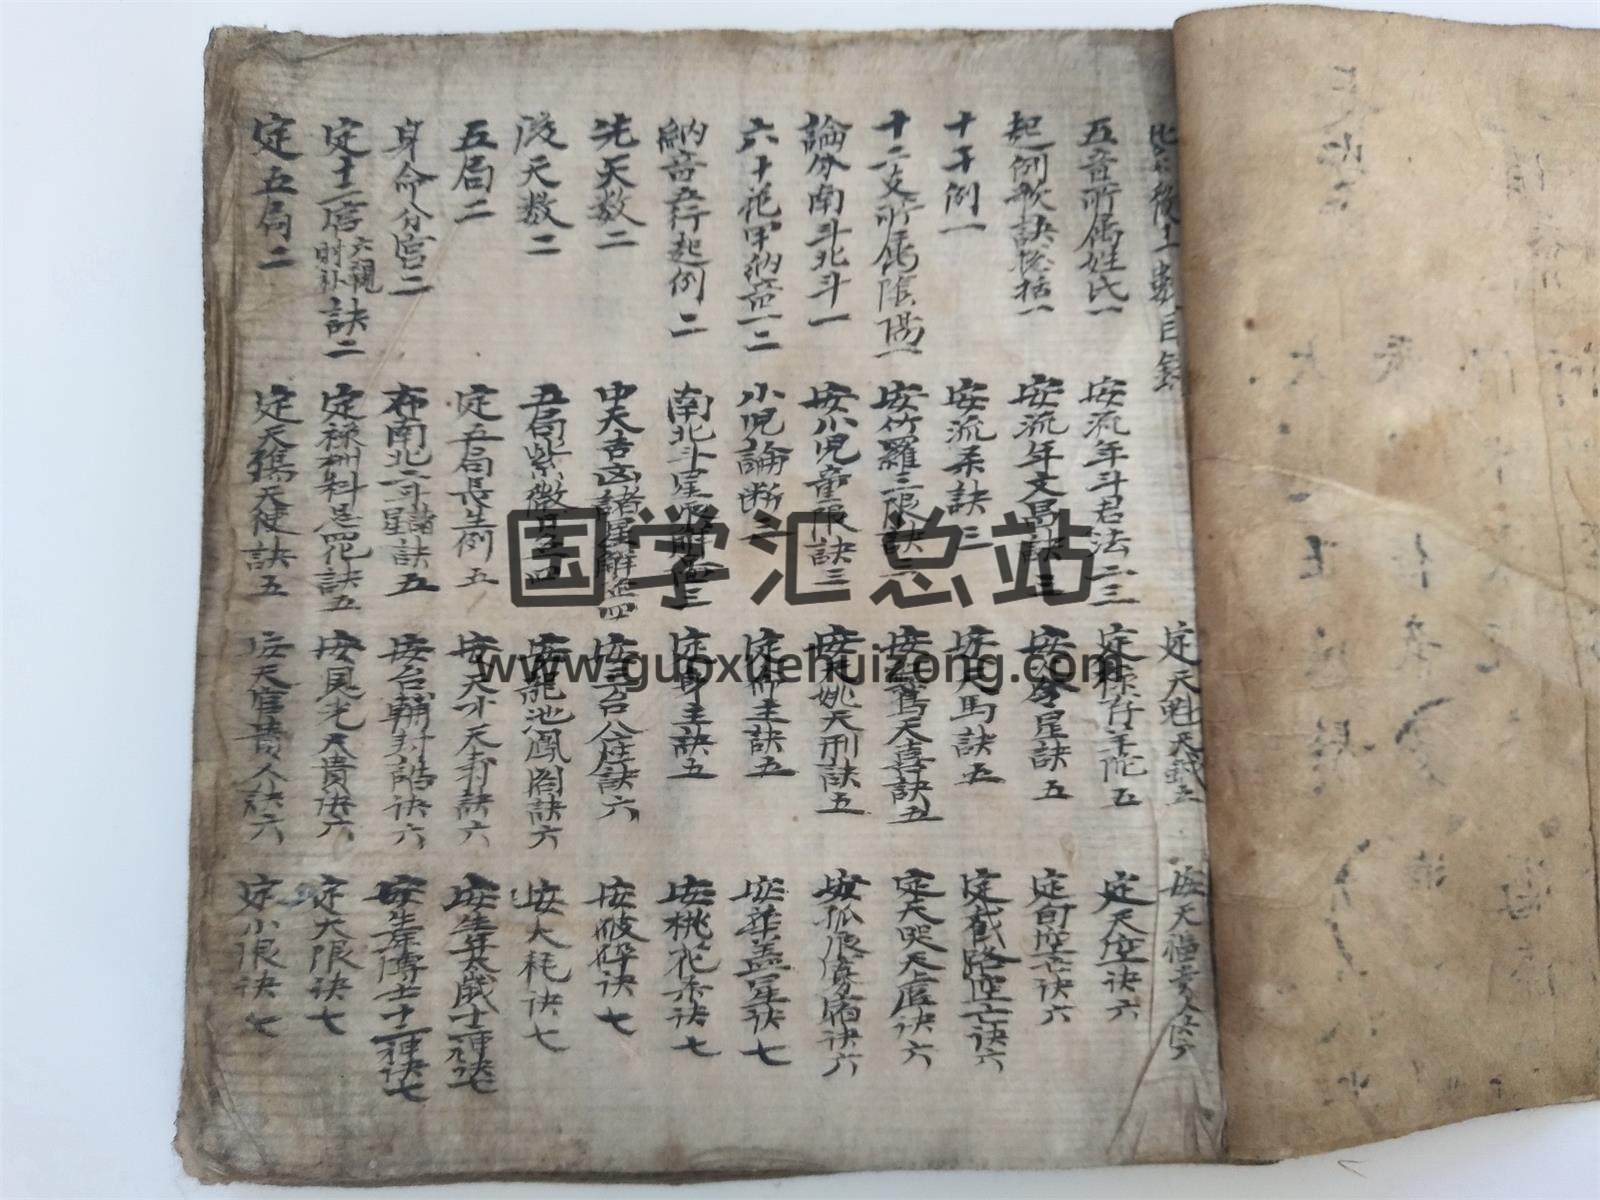 紫微斗數目錄
五音所屬姓氏一
起例歌訣總括一
十干例一
十二支所屬陰陽一
論分南斗北斗一
六十花甲納音一二
納音五行起例二
先天数二
後天数二
五局二
身命分宮二
定十二宮六親訣二
定五局二
安流年斗君法二三
安流年文昌訣三
安流 訣三
安竹羅三限訣三
安小児童限訣三
小児論断三
南北斗星 三
中天吉凶諸星 四
五局紫微 四
定五局長生例五
布南北二斗諸星訣五
定禄權科忌四化訣五
定天殤天使訣五
定天魁天鉞五
定禄存羊陀五
安火令星訣五
安天馬訣五
安紅鸞天喜訣五
安天姚天刑訣五
定命主訣五
定身主訣五
安三台八座訣六
安龍池鳳閣訣六
安天才天寿訣六
安台輔封誥诀六
安 光天貴诀六
安天官貴人訣六
安天福貴人诀六
定天空诀六
定旬空 诀六
定截路空亡诀六
定天哭天虛诀六
安孤辰寡宿诀六
安華盖星诀七
安桃花杀诀七
安破碎诀七
安大耗诀七
安生年太歲十二神诀七
安生年博士十二神诀七
定大限诀七
定小限诀七
国学汇总站
www.guoxuehuizong.com